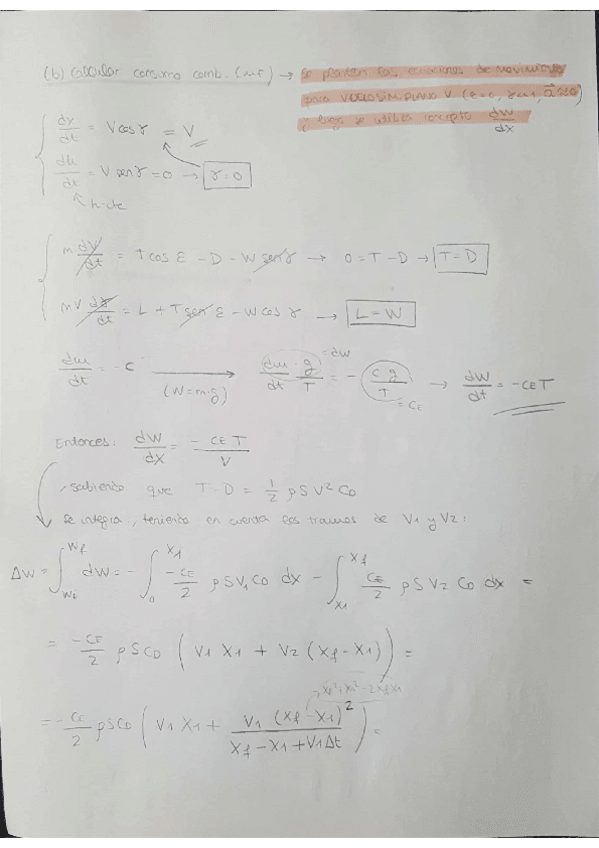 (b) Calcular consumo comb. (mf) → Se plantean las ecuaciones de movimiento
para VUELO SIM. PLANO V (ε=0, γ≪1,
y luego se utiliza concepto dW/dx
dx/dt = V cos γ = V
dh/dt = V sen γ = 0 → γ = 0
h=cte
m dV/dt = T cos ε - D - W sen γ → 0 = T - D → T = D
mV dγ/dt = L + T sen ε - W cos γ → L = W
dm/dt = -c → (W = m·g) dm/dt · g/T = - c g/T → dW/dt = -CE T
= dW
= CE
Entonces: dW/dx = - CE T/V
, sabiendo que T = D = 1/2 ρ S V² CD
se integra, teniendo en cuenta los tramos de V1 y V2:
ΔW = ∫ dW = - ∫ -CE/2 ρ S V1 CD dx - ∫ CE/2 ρ S V2 CD dx =
= -CE/2 ρ S CD ( V1 X1 + V2 (Xf - X1) ) =
Xf² + X1² - 2 Xf X1
= - CE/2 ρ S CD ( V1 X1 + V1 (Xf - X1)² / Xf - X1 + V1 Δt ) =